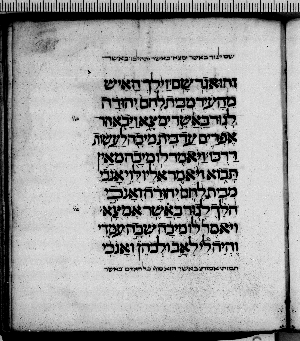 והוא גר שם וילך האיש
מהעיר מבית לחם יהודה
לגור באשר ימצא ויבא הר
אפרים עד בית מיכה לעשות
דרכו ויאמר לו מיכה מאין
תבוא ויאמר אליו לוי אנכי
מבית לחם יהודה ואנכי
הלך לגור באשר אמצא
ויאמר לו מיכה שבה עמדי
והיה לי לאב ולכהן ואנכי